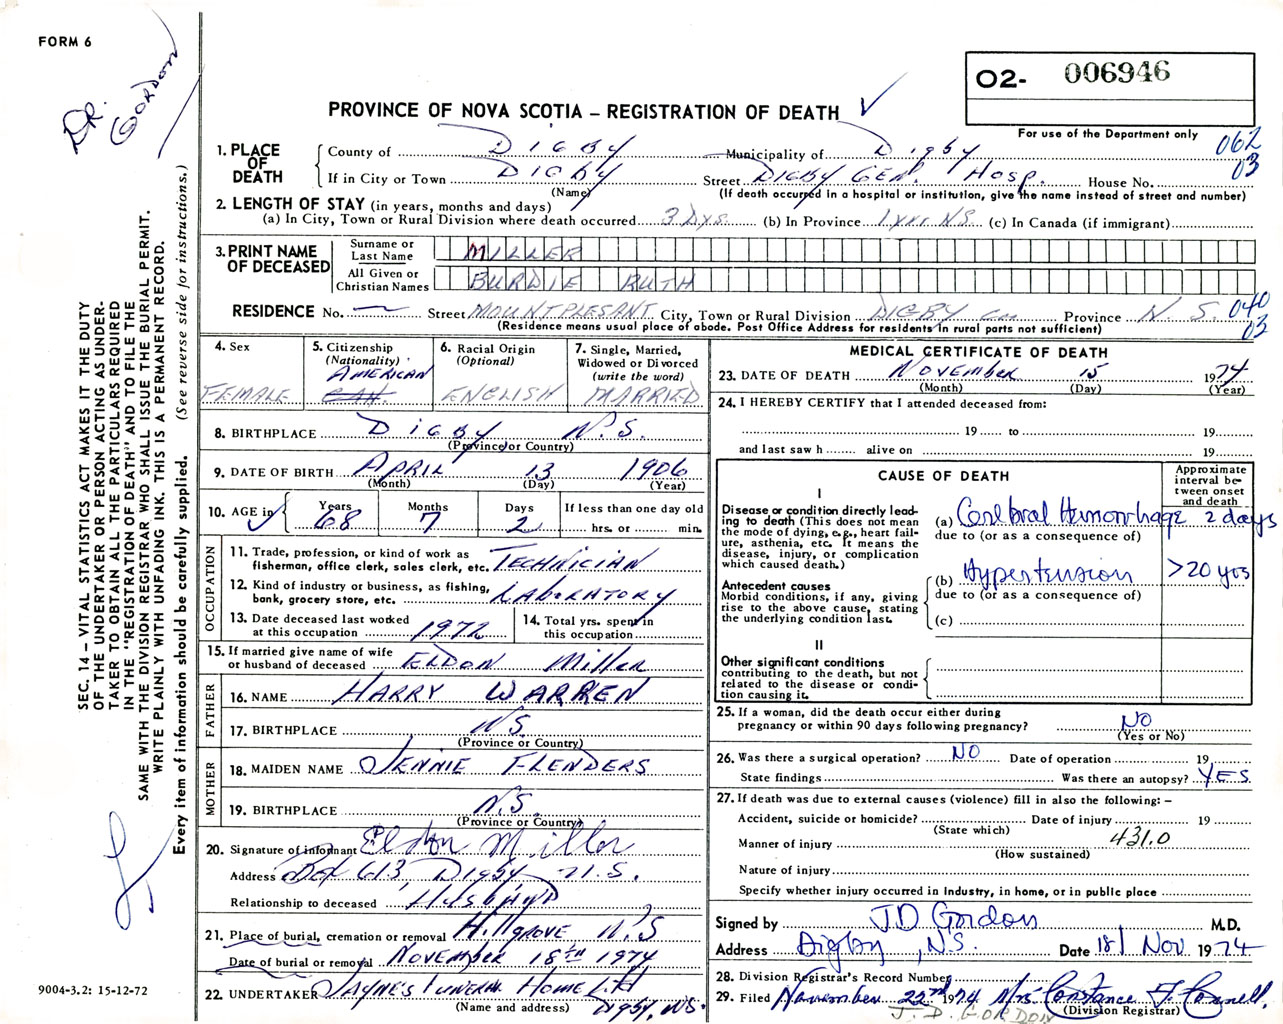 FORM 6
DR. GORDON
O2- 006946
For use of the Department only
PROVINCE OF NOVA SCOTIA – REGISTRATION OF DEATH
062
03
1. PLACE OF DEATH
County of DIGBY Municipality of Digby
If in City or Town DIGBY Street DIGBY GEN. Hosp. House No.
(Name) (If death occurred in a hospital or institution, give the name instead of street and number)
2. LENGTH OF STAY (in years, months and days)
(a) In City, Town or Rural Division where death occurred 3 Dys. (b) In Province (c) In Canada (if immigrant)
3. PRINT NAME OF DECEASED
Surname or Last Name MILLER
All Given or Christian Names BURDIE RUTH
RESIDENCE No. — Street MOUNTPLESANT City, Town or Rural Division DIGBY Co. Province N.S.
040
03
(Residence means usual place of abode. Post Office Address for residents in rural parts not sufficient)
4. Sex
FEMALE
5. Citizenship (Nationality)
AMERICAN
CAN.
6. Racial Origin (Optional)
ENGLISH
7. Single, Married, Widowed or Divorced (write the word)
MARRIED
8. BIRTHPLACE DIGBY N.S.
(Province or Country)
9. DATE OF BIRTH APRIL 13 1906
(Month) (Day) (Year)
10. AGE in Years 68 Months 7 Days 2 If less than one day old hrs. or min.
OCCUPATION
11. Trade, profession, or kind of work as fisherman, office clerk, sales clerk, etc. TECHNICIAN
12. Kind of industry or business, as fishing, bank, grocery store, etc. LABORATORY
13. Date deceased last worked at this occupation 1972
14. Total yrs. spent in this occupation
15. If married give name of wife or husband of deceased ELDON Miller
FATHER
16. NAME HARRY WARREN
17. BIRTHPLACE N.S.
(Province or Country)
MOTHER
18. MAIDEN NAME JENNIE FLENDERS
19. BIRTHPLACE N.S.
(Province or Country)
20. Signature of informant Eldon Miller
Address Box 613, Digby, N.S.
Relationship to deceased HUSBAND
21. Place of burial, cremation or removal Hillgrove N.S
Date of burial or removal NOVEMBER 18th 1974
22. UNDERTAKER JAYNE'S FUNERAL HOME Ltd
(Name and address) Digby, N.S.
MEDICAL CERTIFICATE OF DEATH
23. DATE OF DEATH November 15 1974
(Month) (Day) (Year)
24. I HEREBY CERTIFY that I attended deceased from:
19 to 19
and last saw h alive on 19
CAUSE OF DEATH
Approximate interval between onset and death
I
Disease or condition directly leading to death (This does not mean the mode of dying, e.g., heart failure, asthenia, etc. It means the disease, injury, or complication which caused death.)
(a) Cerebral Hemorrhage 2 days
due to (or as a consequence of)
Antecedent causes
Morbid conditions, if any, giving rise to the above cause, stating the underlying condition last.
(b) Hypertension >20 yrs
due to (or as a consequence of)
(c)
II
Other significant conditions contributing to the death, but not related to the disease or condition causing it.
25. If a woman, did the death occur either during pregnancy or within 90 days following pregnancy? NO
(Yes or No)
26. Was there a surgical operation? NO Date of operation 19
State findings Was there an autopsy? YES
27. If death was due to external causes (violence) fill in also the following: –
Accident, suicide or homicide? Date of injury 19
(State which)
431.0
Manner of injury
(How sustained)
Nature of injury
Specify whether injury occurred in industry, in home, or in public place
Signed by J.D. Gordon M.D.
Address Digby, N.S. Date 18/ Nov 1974
28. Division Registrar's Record Number
29. Filed November 22nd 1974 Mrs. Constance F. Connell.
J. D. GORDON (Division Registrar)
SEC. 14 – VITAL STATISTICS ACT MAKES IT THE DUTY
OF THE UNDERTAKER OR PERSON ACTING AS UNDER-
TAKER TO OBTAIN ALL THE PARTICULARS REQUIRED
IN THE "REGISTRATION OF DEATH" AND TO FILE THE
SAME WITH THE DIVISION REGISTRAR WHO SHALL ISSUE THE BURIAL PERMIT.
WRITE PLAINLY WITH UNFADING INK. THIS IS A PERMANENT RECORD.
Every item of information should be carefully supplied. (See reverse side for instructions.)
9004-3.2: 15-12-72